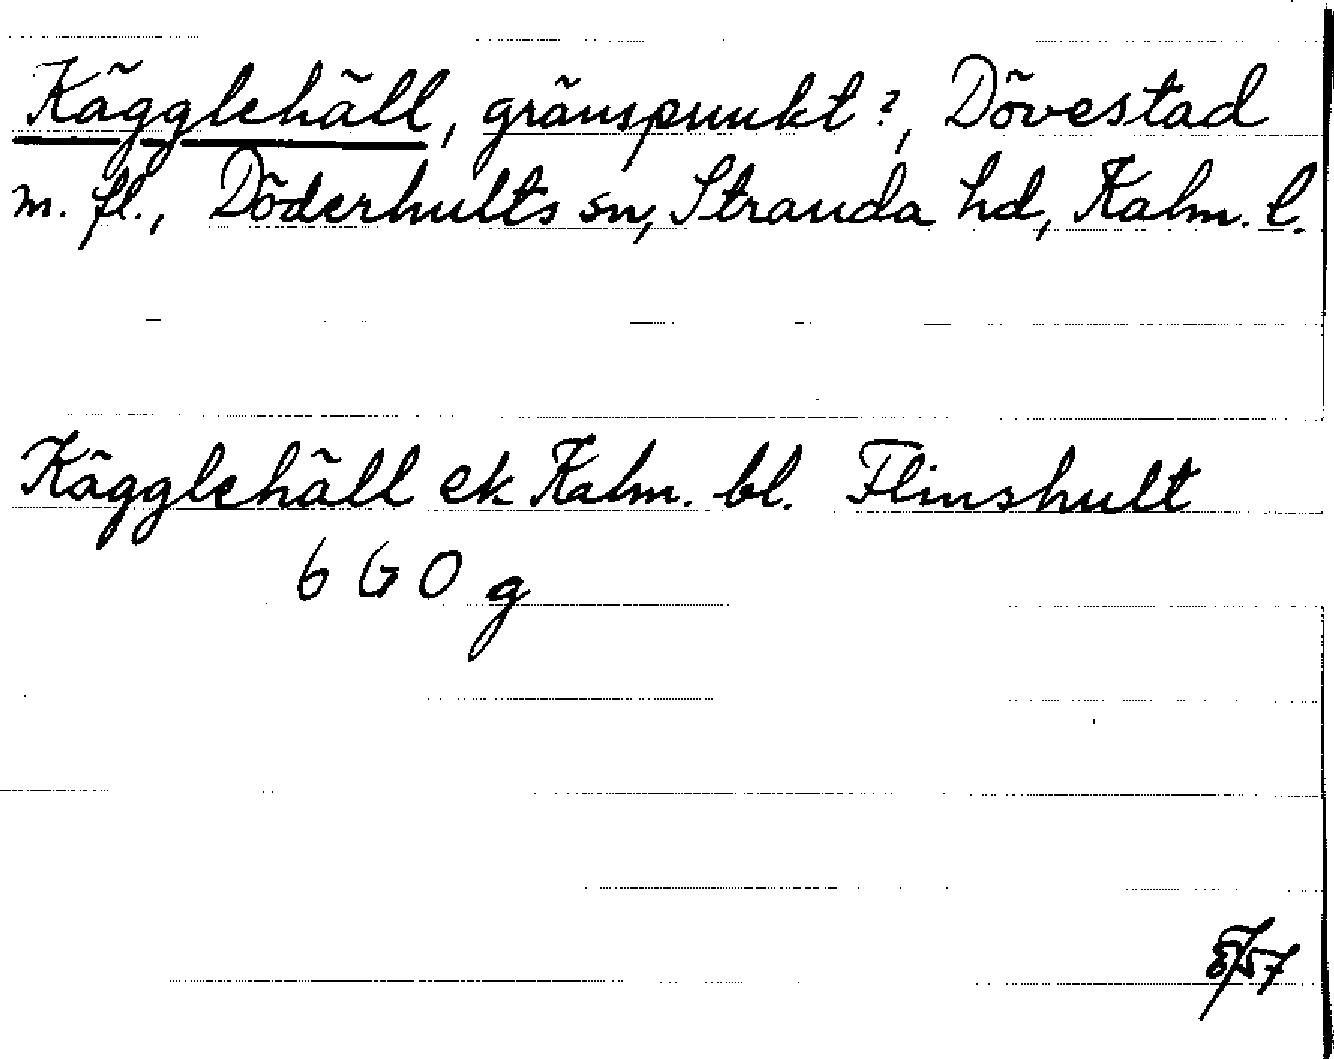 Kägglehäll, gränspunkt?, Dövestad
m. fl., Döderhults sn, Stranda hd, Kalm. l.
Kägglehäll ek Kalm. bl. Flinshult
6 G 0 g